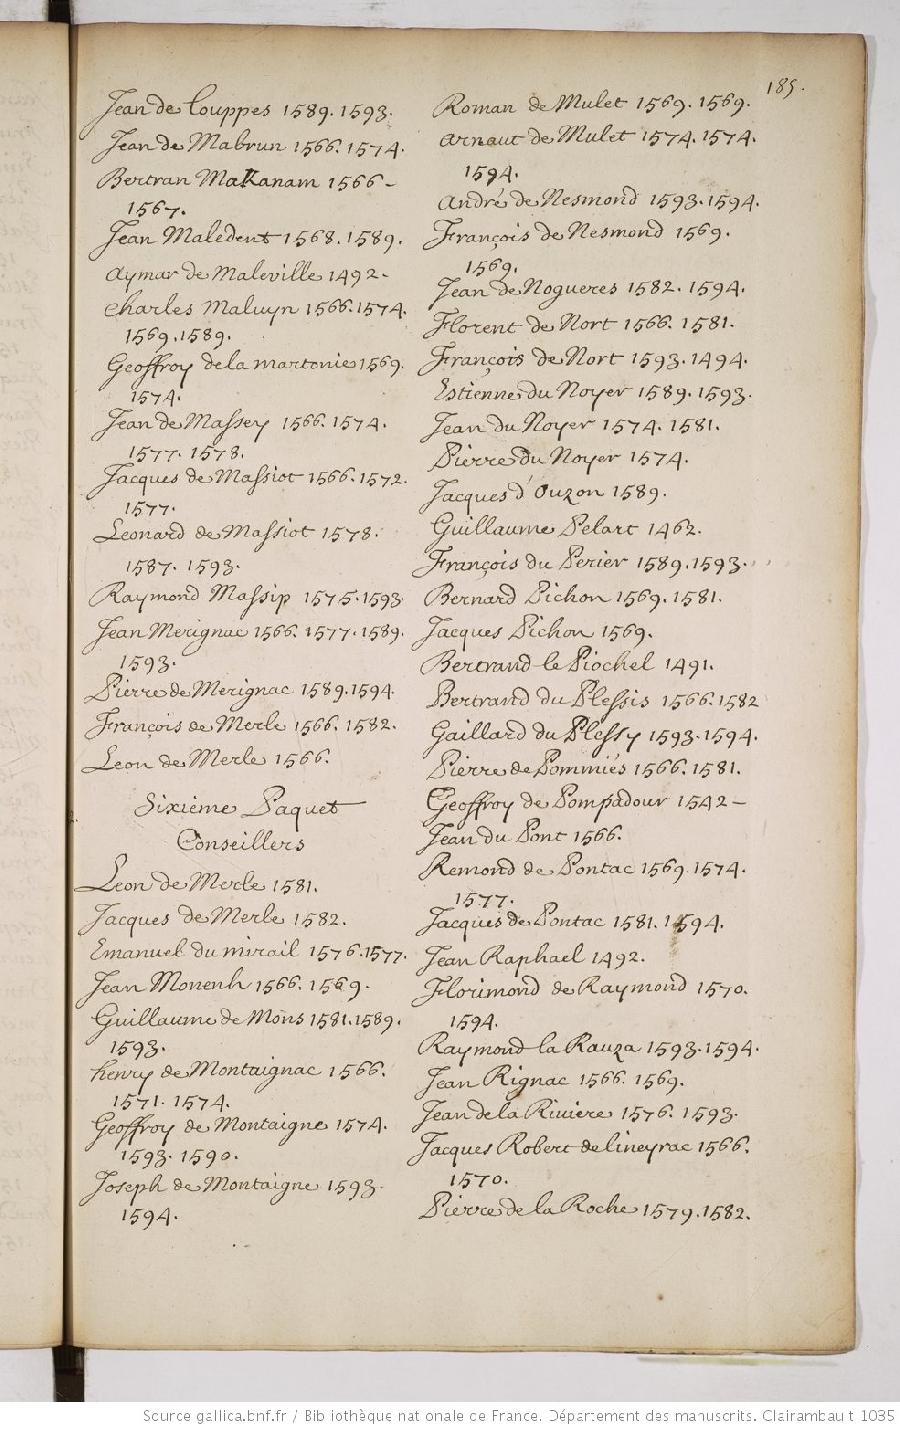 185.
Jean de Louppes 1589. 1593.
Jean de Mabrun 1566. 1574.
Bertran Makanam 1566-
1567.
Jean Maledent 1568. 1589.
aymar de Maleville 1492-
Charles Maluyn 1566. 1574.
1569. 1589.
Geoffroy de la martonie 1569.
1574.
Jean de Massey 1566. 1574.
1577. 1578.
Jacques de Massiot 1566. 1572.
1577.
Leonard de Massiot 1578.
1587. 1593.
Raymond Massip 1575. 1593
Jean Merignac 1566. 1577. 1589.
1593.
Pierre de Merignac 1589. 1594.
François de Merle 1566. 1582.
Leon de Merle 1566.
Sixieme Paquet
Conseillers
Leon de Merle 1581.
Jacques de Merle 1582.
Emanuel du mirail 1576. 1577.
Jean Monenh 1566. 1569.
Guillaume de Mons 1581. 1589.
1593.
henry de Montaignac 1566.
1571. 1574.
Geoffroy de Montaigne 1574.
1593. 1590.
Joseph de Montaigne 1593.
1594.
Roman de Mulet 1569. 1569.
arnaut de Mulet 1574. 1574.
1594.
andré de Nesmond 1593. 1594.
François de Nesmond 1569.
1569.
Jean de Nogueres 1582. 1594.
Florent de Nort 1566. 1581.
François de Nort 1593. 1494.
Estienne du Noyer 1589. 1593.
Jean du Noyer 1574. 1581.
Pierre du Noyer 1574.
Jacques d'Ouzon 1589.
Guillaume Pelart 1462.
François du Perier 1589. 1593.
Bernard Pichon 1569. 1581.
Jacques Pichon 1569.
Bertrand le Piochel 1491.
Bertrand du Plessis 1566. 1582
Gaillard du Plessy 1593. 1594.
Pierre de Pommiés 1566. 1581.
Geoffroy de Pompadour 1542-
Jean du Pont 1566.
Remond de Pontac 1569. 1574.
1577.
Jacques de Pontac 1581. 1594.
Jean Raphael 1492.
Florimond de Raymond 1570.
1594.
Raymond la Rauza 1593. 1594.
Jean Rignac 1566. 1569.
Jean de la Riviere 1576. 1593.
Jacques Robert de lineyrac 1566.
1570.
Pierre de la Roche 1579. 1582.
Source gallica.bnf.fr / Bibliothèque nationale de France. Département des manuscrits. Clairambault 1035